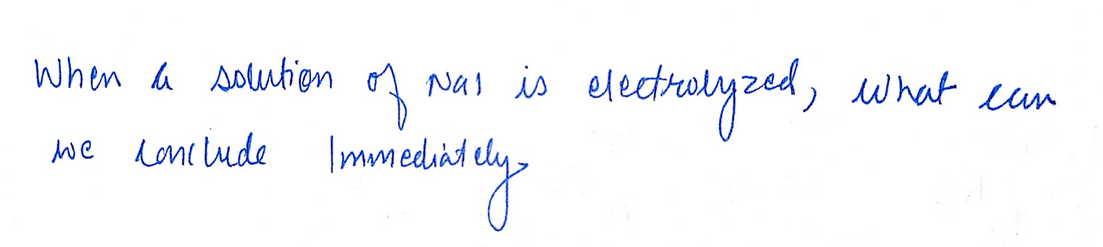 When a solution of NaI is electrolyzed, what can
we conclude Immediately.